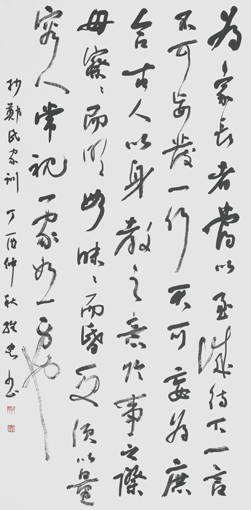 为家长者当以至诚待下一言
不可妄发一行不可妄为庶
合古人以身教之意临事之际
毋察察而明毋昧昧而昏更须以量
容人常视一家如一身也
抄郑氏家训 丁酉仲秋